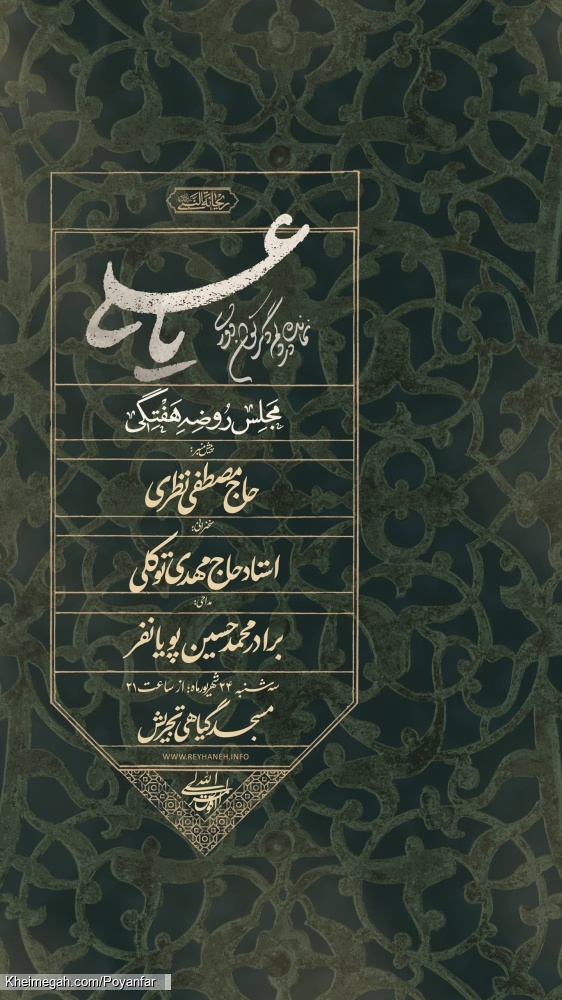 ریحانة النبی
یا علی
نماند در دلم دگر توان دوری
مجلس روضه هفتگی
پیش منبر:
حاج مصطفی نظری
سخنرانی:
استاد حاج مهدی توکلی
مداحی:
برادر محمد حسین پویانفر
سه شنبه ۲۴ شهریور ماه؛ از ساعت ۲۱
مسجد گیاهی تجریش
WWW.REYHANEH.INFO
Kheimegah.com/Poyanfar